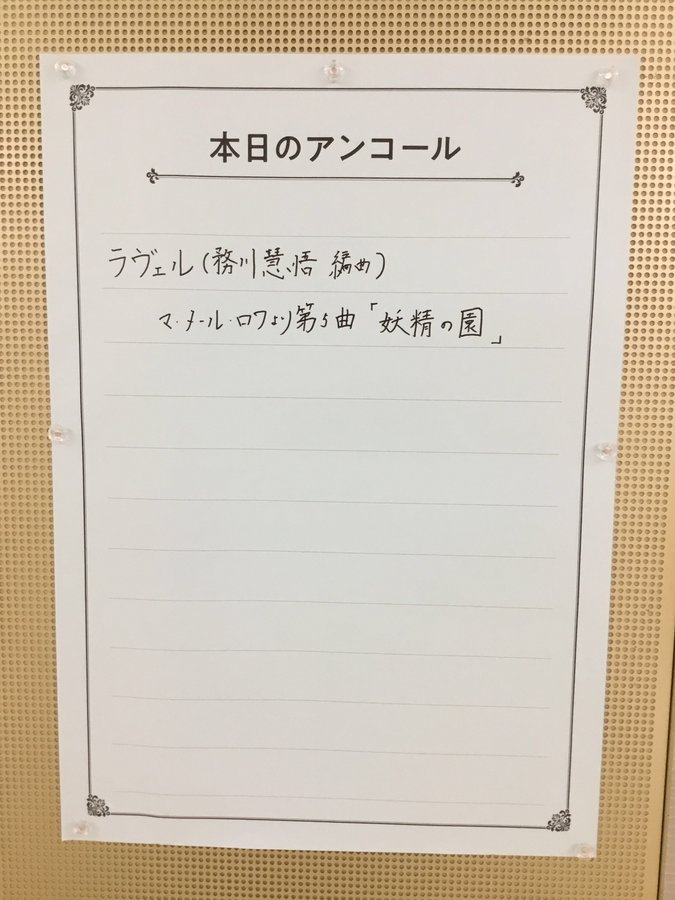 本日のアンコール
ラヴェル(務川慧悟 編曲)
マ・メール・ロワより第5曲「妖精の園」